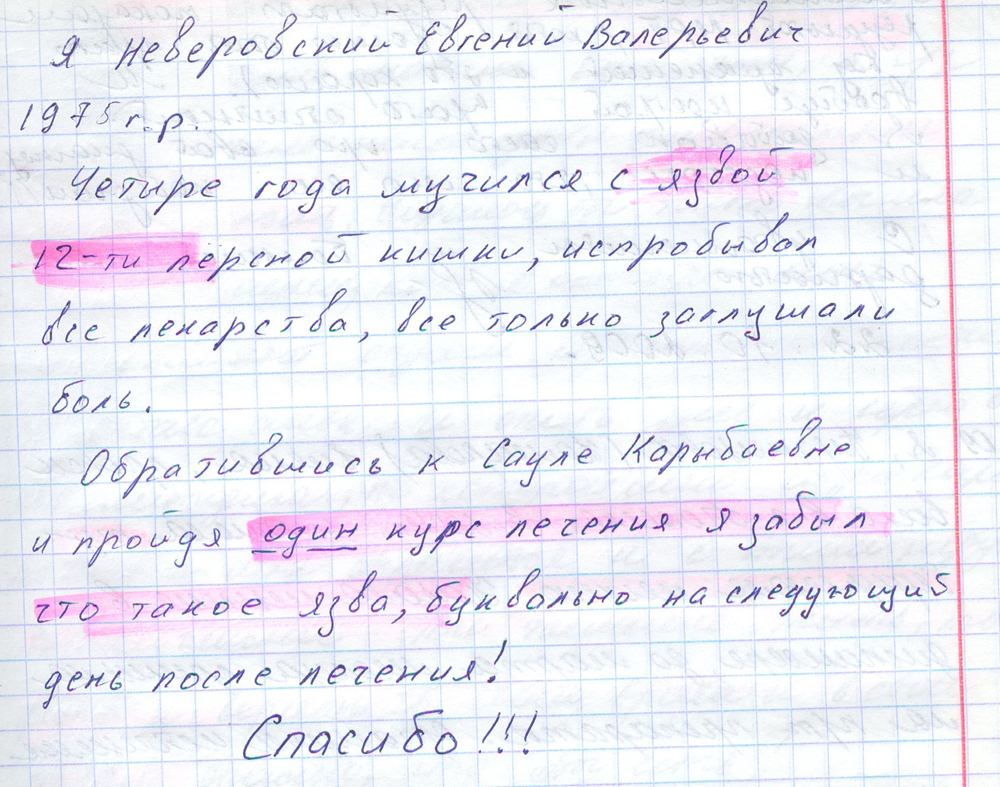 Я Неверовский Евгений Валерьевич
1975 г.р.
Четыре года мучился с язвой
12-ти перской кишки, испробывал
все лекарства, все только заглушали
боль.
Обратившись к Сауле Карыбаевне
и пройдя один курс лечения я забыл
что такое язва, буквально на следующий
день после лечения!
Спасибо!!!